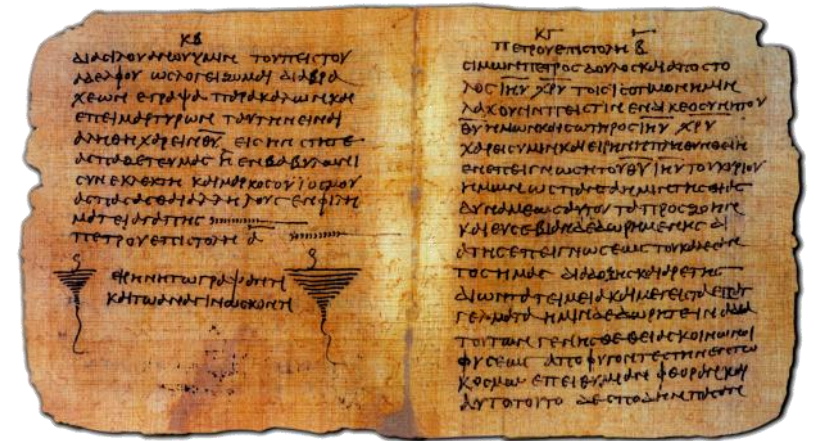 ΚΒ
ΔΙΑ ϹΙΛΟΥΑΝΟΥ ΥΜΙΝ ΤΟΥ ΠΕΙϹΤΟΥ
ΑΔΕΛΦΟΥ ΩϹ ΛΟΓΕΙΖΟΜΑΙ ΔΙΑ ΒΡΑ
ΧΕΩΝ ΕΓΡΑΨΑ ΠΑΡΑΚΑΛΩΝ ΚΑΙ
ΕΠΕΙΜΑΡΤΥΡΩΝ ΤΑΥΤΗΝ ΕΙΝΑΙ
ΑΛΗΘΗ ΧΑΡΕΙΝ Θ̅Υ̅ ΕΙϹ ΗΝ ϹΤΗΤΕ
ΑϹΠΑΖΕΤΕ ΥΜΑϹ Η ΕΝ ΒΑΒΥΛΩΝΙ
ϹΥΝΕΚΛΕΚΤΗ ΚΑΙ ΜΑΡΚΟϹ Ο ΥΙΟϹ ΜΟΥ
ΑϹΠΑϹΑϹΘΑΙ ΑΛΛΗΛΟΥϹ ΕΝ ΦΙΛΗ
ΜΑΤΕΙ ΑΓΑΠΗϹ
ΠΕΤΡΟΥ ΕΠΙϹΤΟΛΗ Α̅
ΕΙΡΗΝΗ ΤΩ ΓΡΑΨΑΝΤΙ
ΚΑΙ ΤΩ ΑΝΑΓΙΝΩϹΚΟΝΤΙ
ΚΓ
ΠΕΤΡΟΥ ΕΠΙϹΤΟΛΗ Β̅
ϹΙΜΩΝ ΠΕΤΡΟϹ ΔΟΥΛΟϹ ΚΑΙ ΑΠΟϹΤΟ
ΛΟϹ Ι̅Η̅Υ̅ Χ̅Ρ̅Υ̅ ΤΟΙϹ ΙϹΟΤΙΜΟΝ ΗΜΙΝ
ΛΑΧΟΥϹΙΝ ΠΕΙϹΤΙΝ ΕΝ ΔΙΚΕΟϹΥΝΗ ΤΟΥ
Θ̅Υ̅ ΗΜΩΝ ΚΑΙ ϹΩΤΗΡΟϹ Ι̅Η̅Υ̅ Χ̅Ρ̅Υ̅
ΧΑΡΕΙϹ ΥΜΙΝ ΚΑΙ ΕΙΡΗΝΗ ΠΛΗΘΥΝΘΕΙΗ
ΕΝ ΕΠΕΙΓΝΩϹΗ ΤΟΥ Θ̅Υ̅ Ι̅Η̅Υ̅ ΤΟΥ ΚΥΡΙΟΥ
ΗΜΩΝ ΩϹ ΠΑΝΤΑ ΗΜΙΝ ΤΗϹ ΘΕΙΑϹ
ΔΥΝΑΜΕΩϹ ΑΥΤΟΥ ΤΑ ΠΡΟϹ ΖΩΗΝ
ΚΑΙ ΕΥϹΕΒΙΑΝ ΔΕΔΩΡΗΜΕΝΗϹ ΔΙ
Α ΤΗϹ ΕΠΕΙΓΝΩϹΕΩϹ ΤΟΥ ΚΑΛΕϹΑΝ
ΤΟϹ ΗΜΑϹ ΔΙΑ ΔΟΞΗϹ ΚΑΙ ΑΡΕΤΗϹ
ΔΙ ΩΝ ΤΑ ΤΕΙΜΕΙΑ ΚΑΙ ΜΕΓΕΙϹΤΑ ΕΠΑΓ
ΓΕΛΜΑΤΑ ΗΜΙΝ ΔΕΔΩΡΗΤΕ ΙΝΑ ΔΙΑ
ΤΟΥΤΩΝ ΓΕΝΗϹΘΕ ΘΕΙΑϹ ΚΟΙΝΩΝΟΙ
ΦΥϹΕΩϹ ΑΠΟΦΥΓΟΝΤΕϹ ΤΗΝ ΕΝ ΤΩ
ΚΟϹΜΩ ΕΠΕΙΘΥΜΙΑΝ ΦΘΟΡΑΝ ΚΑΙ
ΑΥΤΟ ΤΟΥΤΟ ΔΕ ϹΠΟΥΔΗΝ ΠΑϹΑΝ